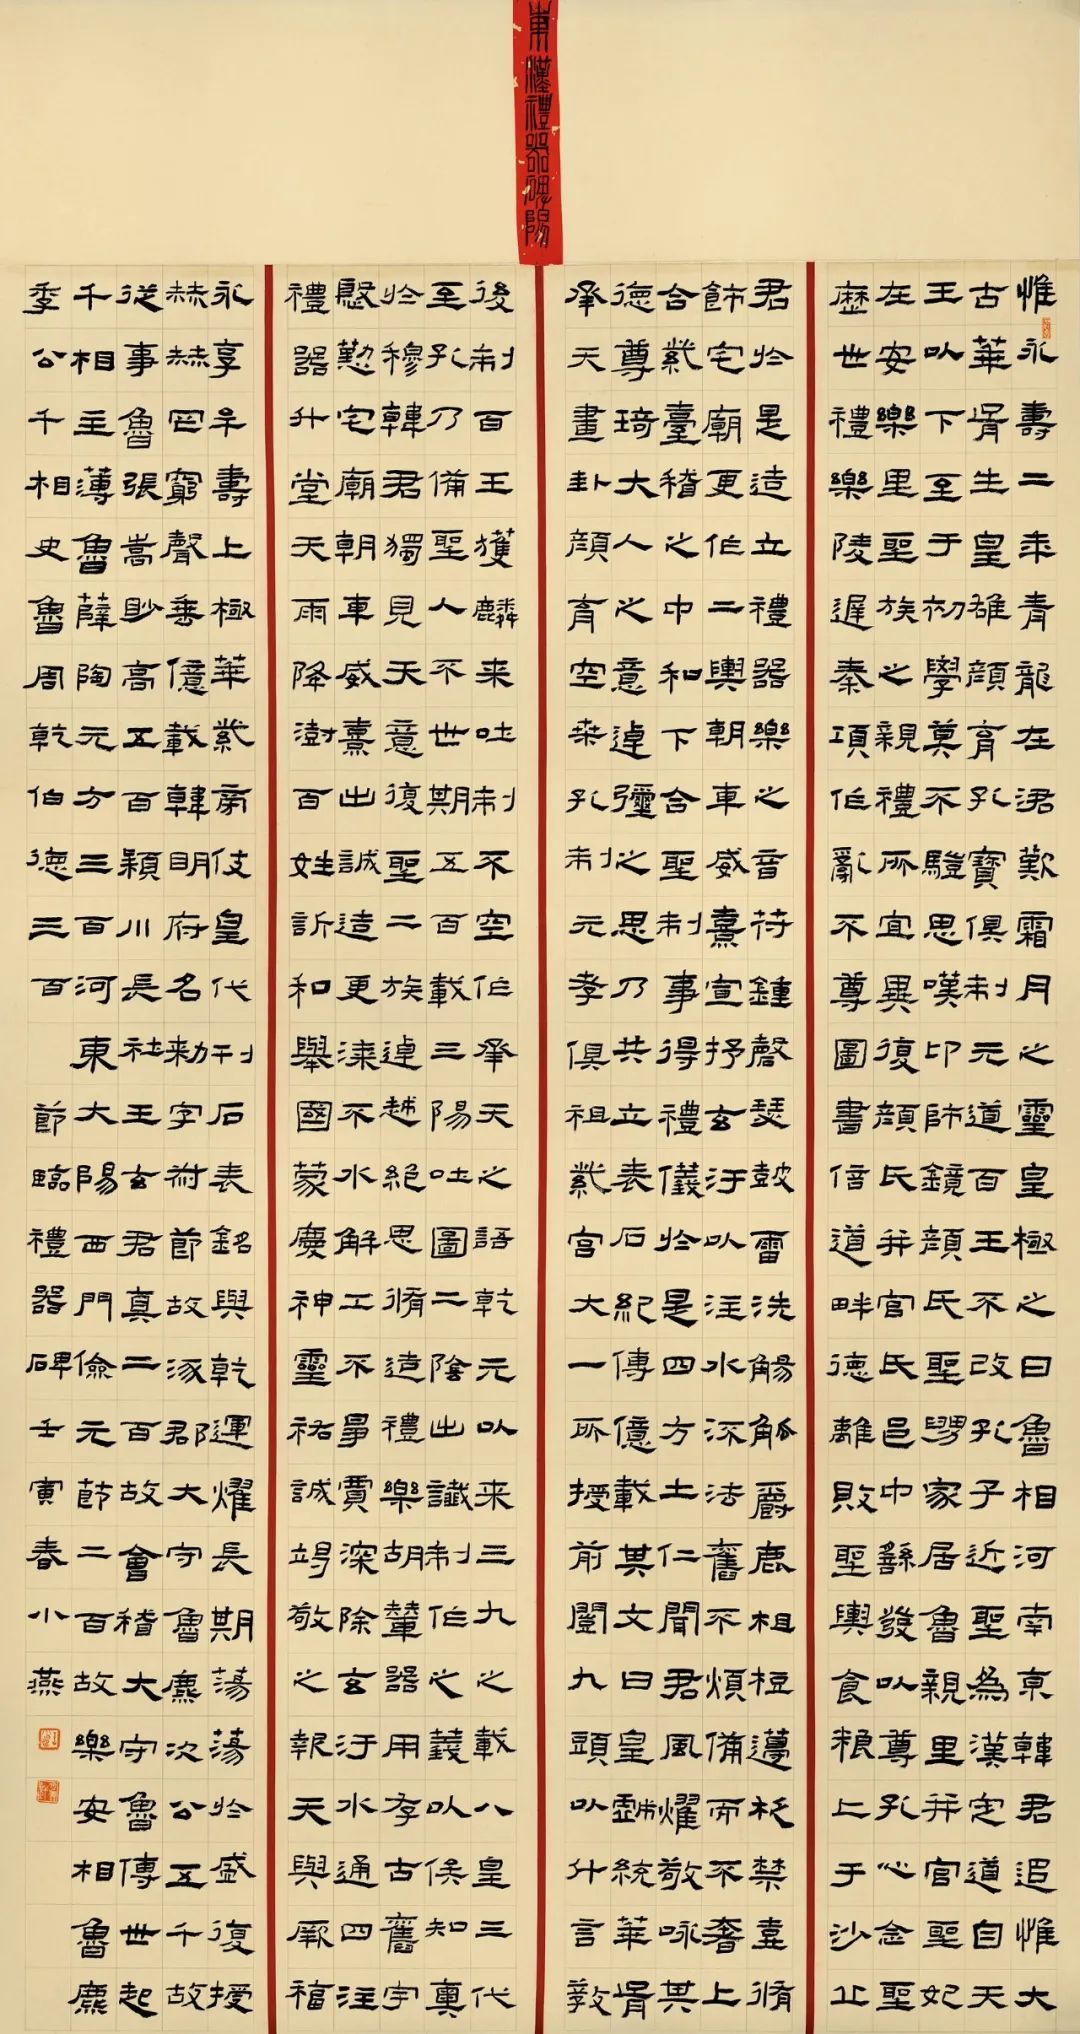 東漢禮器碑陽
惟永壽二年青龍在涒歎霜月之靈皇極之日魯相河南京韓君追惟大
古華胥生皇雄顏育孔寶俱制元道百王不改孔子近聖為漢定道自天
王以下至于初學莫不驥思嘆卬師鏡顏氏聖舅家居魯親里并官聖妃
在安樂里聖族之親禮所宜異復顏氏并官氏邑中繇發以尊孔心念聖
歷世禮樂陵遲秦項作亂不尊圖書倍道畔德離敗聖輿食糧亡于沙丘
君於是造立禮器樂之音符鍾磬瑟鼓雷洗觴觚爵鹿柤梪籩柉禁壺脩
飾宅廟更作二輿朝車威熹宣抒玄汙以注水流法舊不煩備而不奢上
合紫臺稽之中和下合聖制事得禮儀於是四方土仁聞君風燿敬咏其
德尊琦大人之意逴彌之思乃共立表石紀傳億載其文曰皇戲統華胥
承天畫卦顏育空桑孔制元孝俱祖紫宮大一所授前闓九頭以什言教
後制百王獲麟來吐制不空作承天之語乾元以來三九之載八皇三代
至孔乃備聖人不世期五百載三陽吐圖二陰出讖制作之義以俟知奧
於穆韓君獨見天意復聖二族逴越絕思脩造禮樂胡輦器用存古舊宇
慇懃宅廟朝車威熹出誠造更漆不水解工不爭賈深除玄汙水通四注
禮器升堂天雨降澍百姓訢和舉國蒙慶神靈祐誠竭敬之報天與厥福
永享牟壽上極華紫旁伎皇代刊石表銘與乾運燿長期蕩蕩於盛復授
赫赫罔窮聲垂億載韓明府名勑字叔節故涿郡大守魯麃次公五千故
從事魯張嵩眇高五百潁川長社王玄君真二百故會稽大守魯傅世起
千相主薄魯薛陶元方三百河東大陽西門儉元節二百故樂安相魯麃
季公千相史魯周乾伯德三百 節臨禮器碑壬寅春小燕